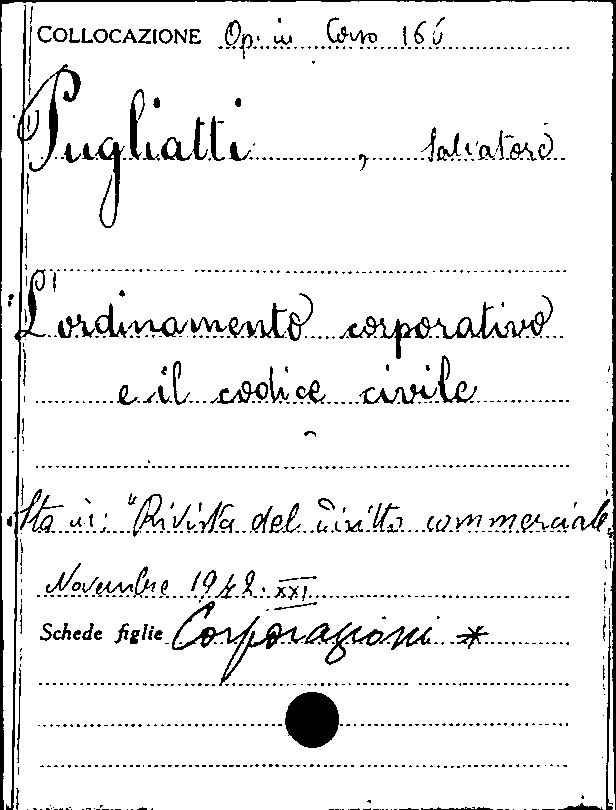 COLLOCAZIONE Op. in Corso 166
Pugliatti, Salvatore
L'ordinamento corporativo
e il codice civile
Sta in: "Rivista del diritto commerciale,
Novembre 1942. XXI
Schede figlie Corporazioni *